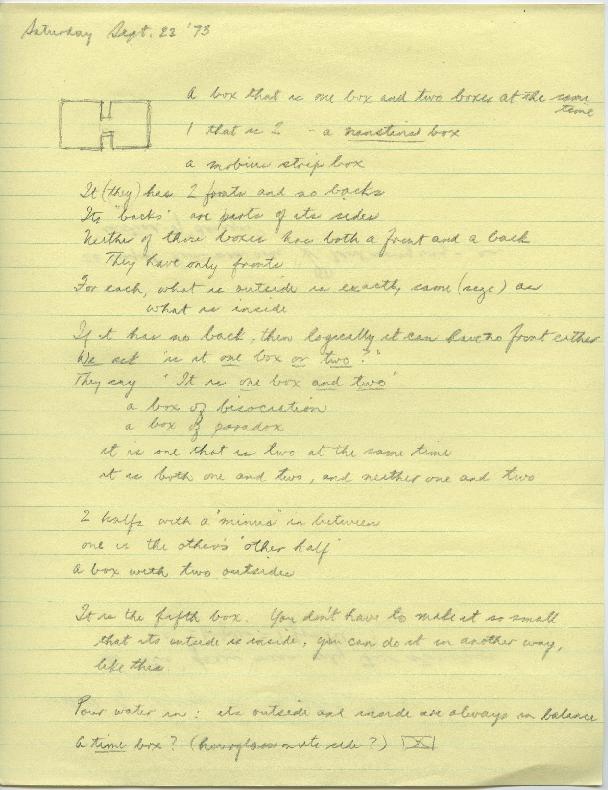 Saturday Sept. 22 '73
A box that is one box and two boxes at the same
time
1 that is 2 - a box
a mobius strip box
It (they) has 2 fronts and no backs
Its "backs" are parts of its sides
Neither of these boxes has both a front and a back
They have only fronts
For each, what is outside is exactly same (size) as
what is inside
If it has no back, then logically it can have no front either
We ask "is it one box or two?"
They say "It is one box and two"
a box of bisociation
a box of paradox
it is one that is two at the same time
it is both one and two, and neither one and two
2 halfs with a "minus" in between
one is the other's "other half"
a box with two outsides
It is the fifth box. You don't have to make it so small
that its outside is inside, you can do it in another way,
like this.
Pour water in: its outside and inside are always in balance
A time box? (hourglass on its side?)